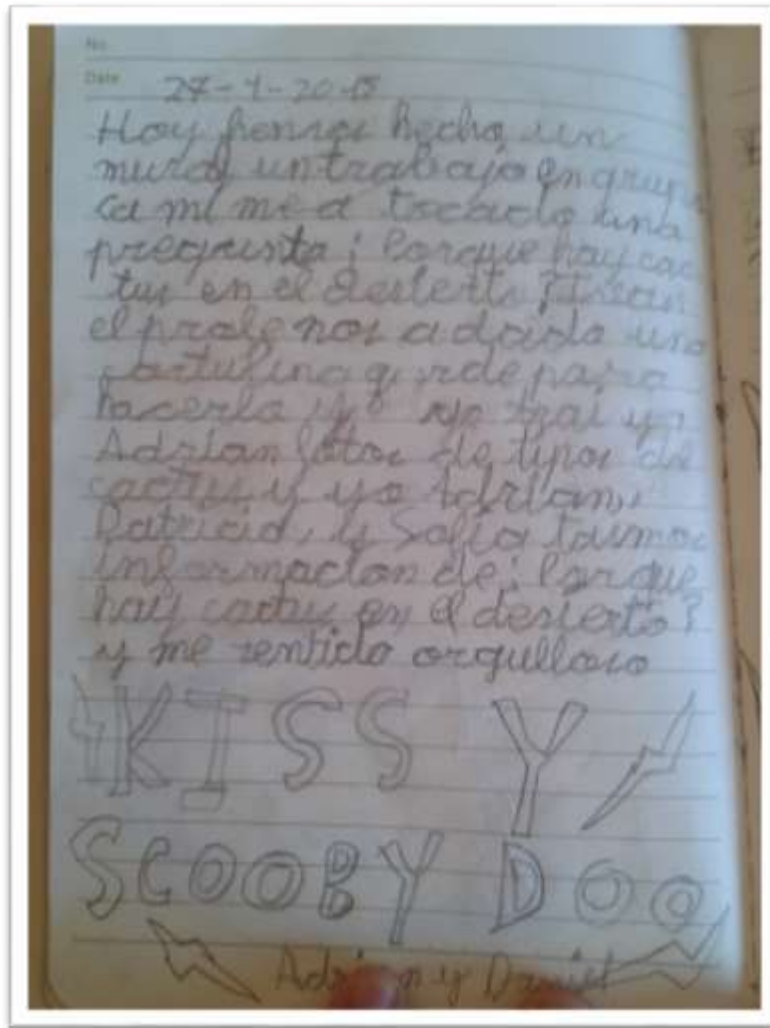 No.
Date 27-4-2015
Hoy hemos hecho un
mural un trabajo en grupo
a mi me a tocado una
pregunta ¿Porque hay cac
tus en el desierto?
el profe nos a dado una
cartulina para
hacerla y yo trai y
Adrian fotos de tipos de
cactus y yo Adrian,
Patricia y Sofia
informacion de ¿Porque
hay cactus en el desierto?
y me sentido orgulloso
KISS Y
SCOOBY DOO
Adrian y Daniel